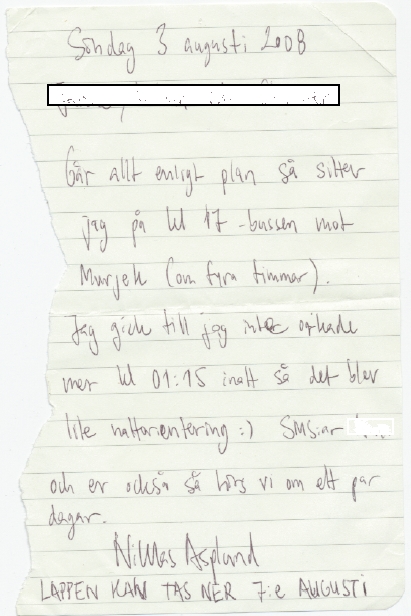 Söndag 3 augusti 2008
Går allt enligt plan så sitter
jag på kl 17-bussen mot
Murjek (om fyra timmar).
Jag gick till jag inte orkade
mer kl 01:15 inatt så det blev
lite nattorientering :) SMS:ar
och er också så hörs vi om ett par
dagar.
Niklas Asplund
LAPPEN KAN TAS NER 7:e AUGUSTI